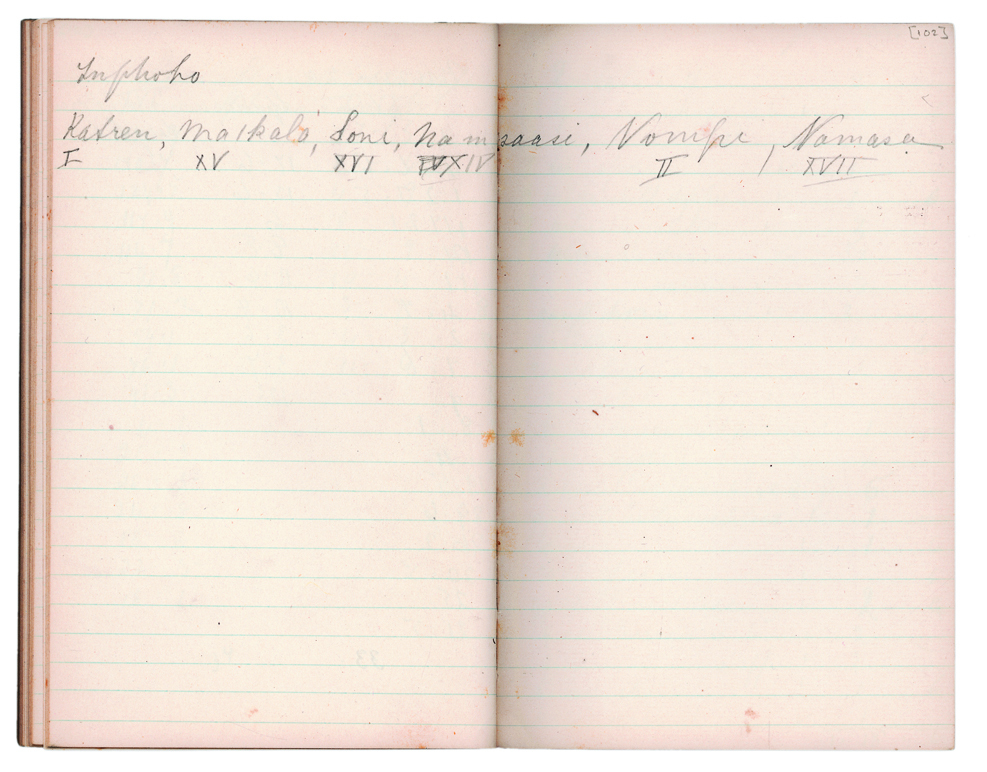 [102]
Inphoho
Katren, Maikaló, Soni, Nampaasi, Nompi, Namasa
I XV XVI XIV II XVII